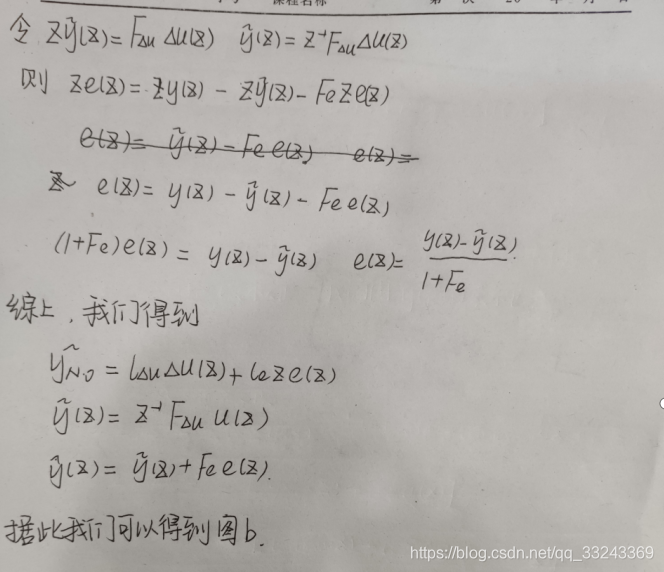 令 zỹ(z) = F_Δu Δu(z)  ỹ(z) = z⁻¹F_Δu Δu(z)
则 ze(z) = zy(z) - zỹ(z) - Fe ze(z)
e(z) = ỹ(z) - Fe e(z)  e(z) =
e(z) = y(z) - ỹ(z) - Fe e(z)
(1+Fe)e(z) = y(z) - ỹ(z)  e(z) = (y(z) - ỹ(z)) / (1+Fe)
综上,我们得到
ŷ_N,0 = l_Δu Δu(z) + le z e(z)
ỹ(z) = z⁻¹ F_Δu u(z)
ŷ(z) = ỹ(z) + Fe e(z).
据此我们可以得到图b.
https://blog.csdn.net/qq_33243369